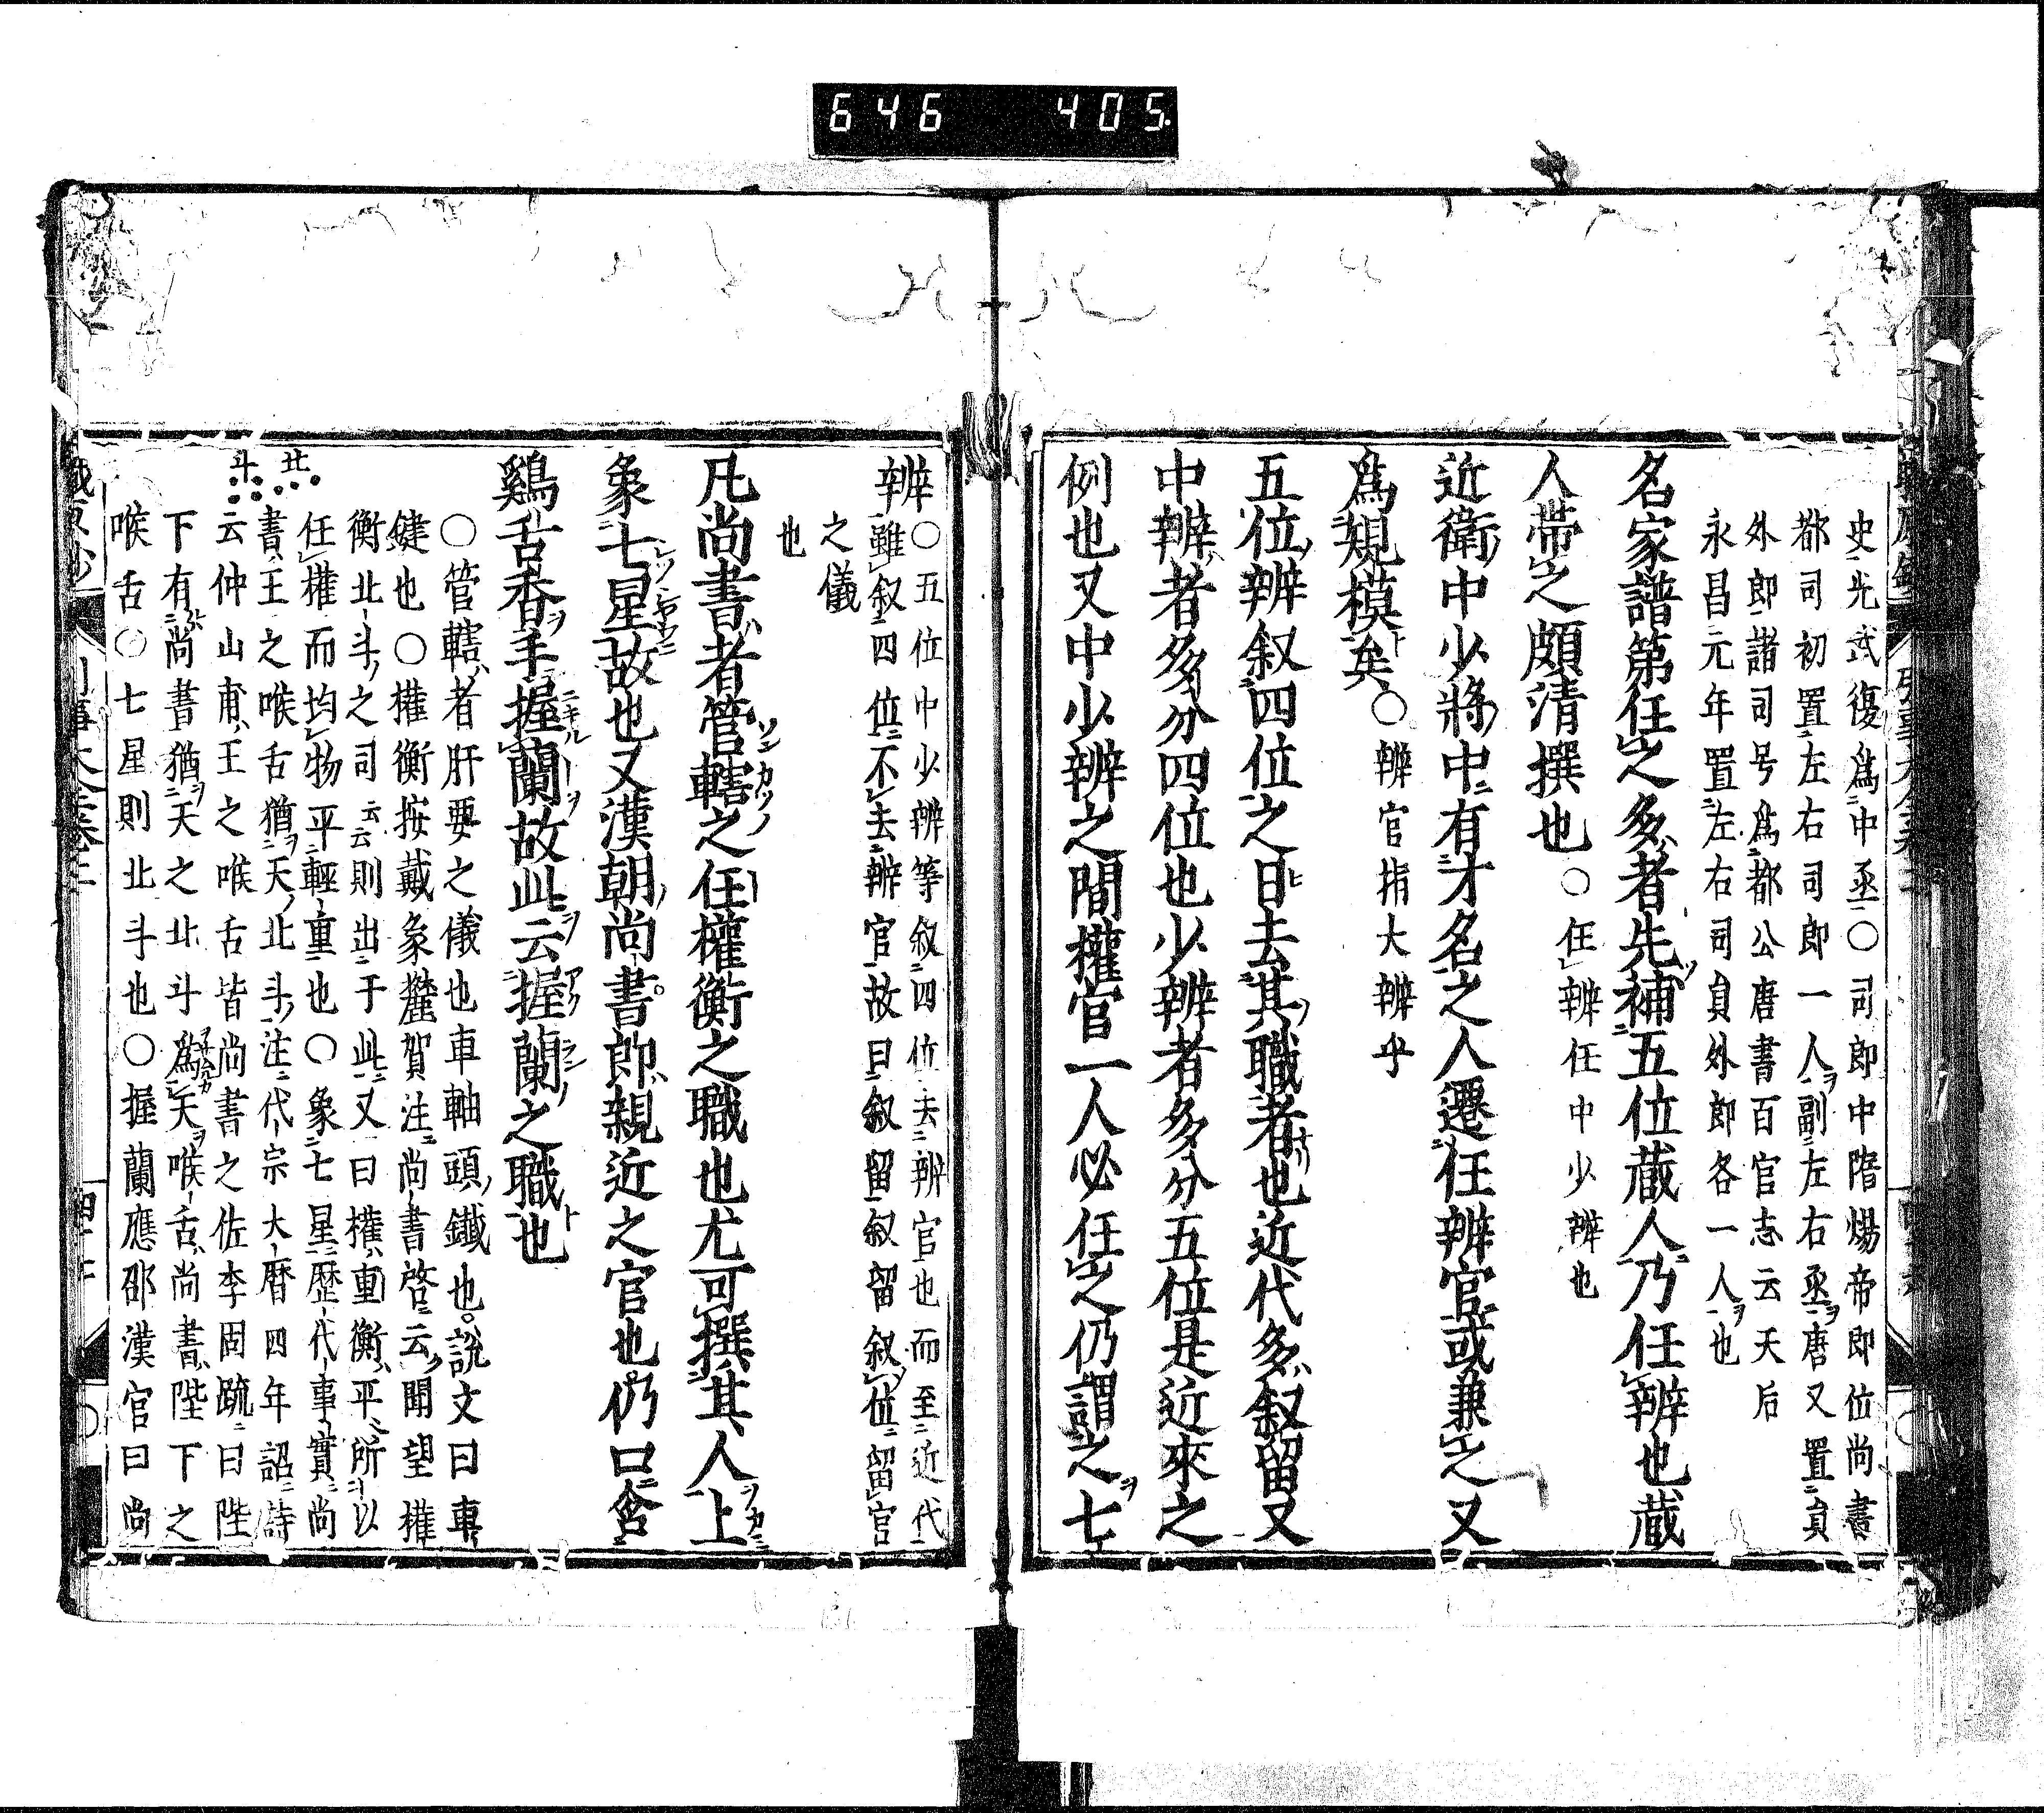 646 405.
史光武復爲中丞○司郎中隋煬帝即位尚書
都司初置左右司郎一人副左右丞唐又置員
外郎諸司号爲都公唐書百官志云天后
永昌元年置左右司員外郎各一人也
名家譜第任之多者先補五位蔵人乃任辨也蔵
人帶之頗清撰也○任辨任中少辨也
近衛中少將中有才名之人遷任辨官或兼之又
爲規模矣○辨官指大辨乎
五位辨叙四位之日去其職者也近代多叙留又
中辨者多分四位也少辨者多分五位是近來之
例也又中少辨之間權官一人必任之仍謂之七
辨○五位中少辨等叙四位去辨官也而至近代
雖叙四位不去辨官故曰叙留叙留叙位留官
之儀
也
凡尚書者管轄之任權衡之職也尤可撰其人上
象七星故也又漢朝尚書郎親近之官也仍口含
鷄舌香手握蘭故此云握蘭之職也
○管轄者肝要之儀也車軸頭鐵也說文曰車
鍵也○權衡按戴象麓賀注尚書啓云聞望權
衡北斗之司云云則出于此又曰權重衡平所以
任權而均物平輕重也○象七星歴代事實尚
書王之喉舌猶天北斗注代宗大暦四年詔詩
云仲山甫王之喉舌皆尚書之佐李固䟽曰陛
下有尚書猶天之北斗爲天喉舌尚書陛下之
喉舌○七星則北斗也○握蘭應邵漢官曰尚
北斗